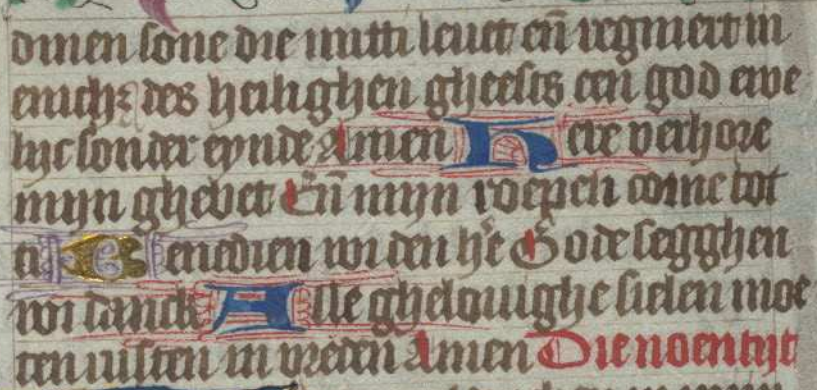 dinen sone die mitti leuet en̄ regniert in
enich͛ des heilighen gheests een god ewe
lijc sonder eynde Amen Here verhore
mijn ghebet En̄ mijn roepen come tot
ti Benedien wi den he͛ Gode segghen
wi danck Alle ghelouighe sielen moe
ten rusten in vreden Amen Die noentijt